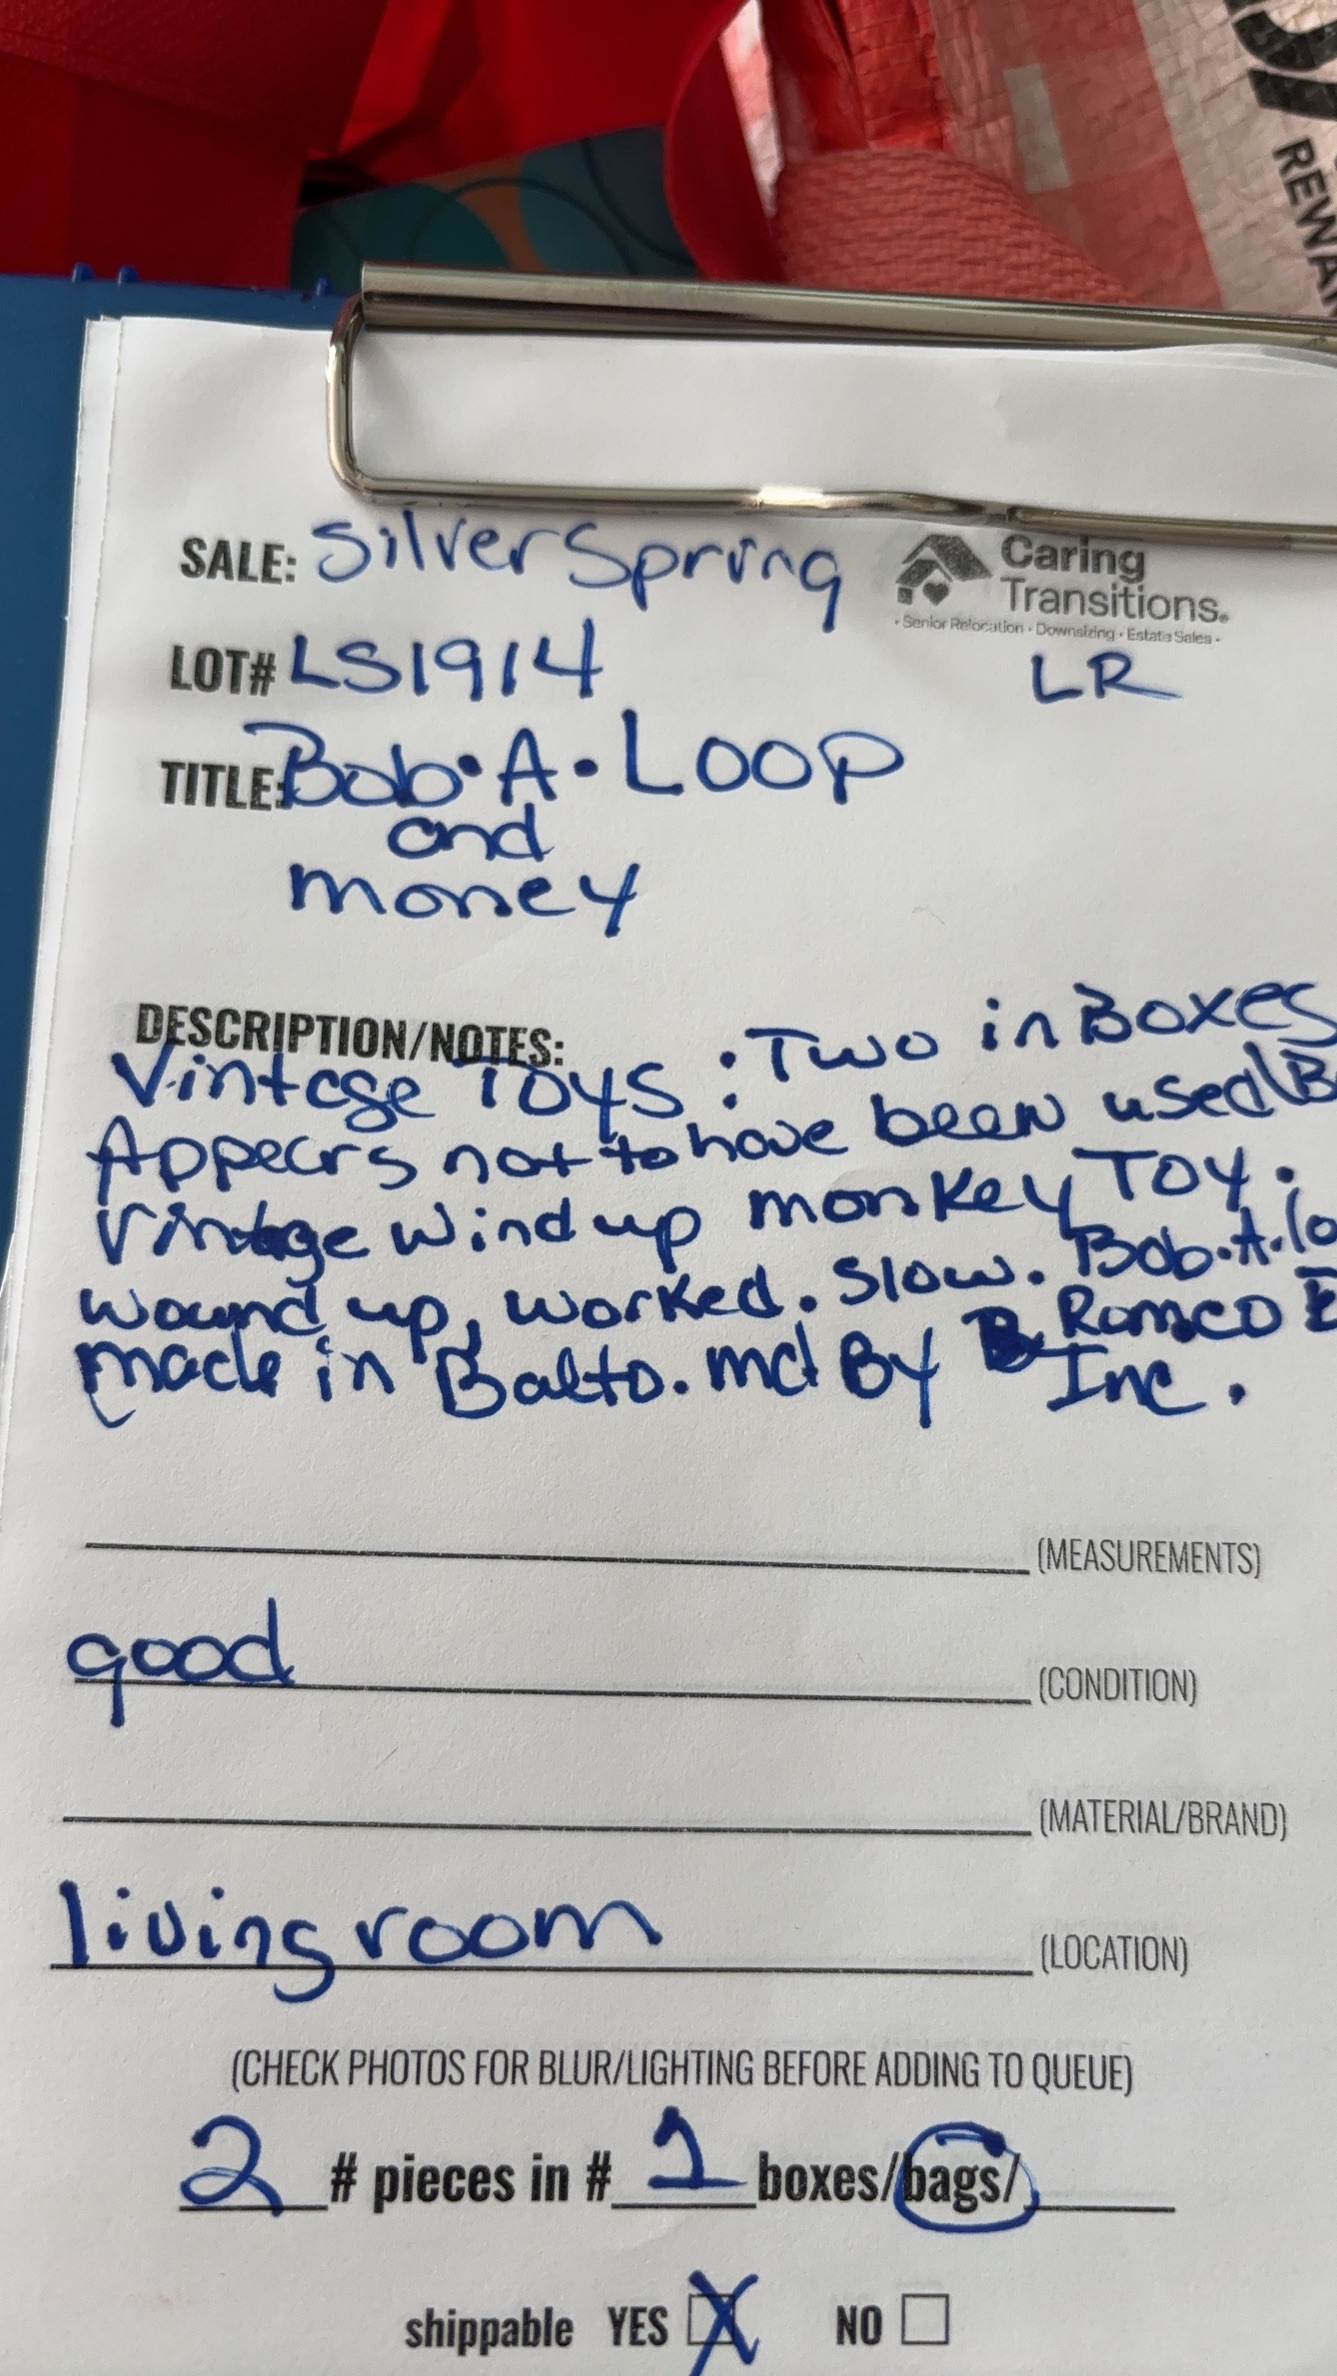 REWA
SALE: Silver Spring
Caring
Transitions.
• Senior Relocation • Downsizing • Estate Sales •
LOT# LS1914
LR
TITLE: Bob•A•Loop
and
money
DESCRIPTION/NOTES: : Two in Boxes
Vintage Toys :
Appears not to have been used
Vintage wind up monkey Toy.
wound up, worked. Slow. Bob.A.lo
made in Balto. md By Romco
Inc.
(MEASUREMENTS)
good (CONDITION)
(MATERIAL/BRAND)
living room (LOCATION)
(CHECK PHOTOS FOR BLUR/LIGHTING BEFORE ADDING TO QUEUE)
2 # pieces in # 1 boxes/bags/
shippable YES X NO